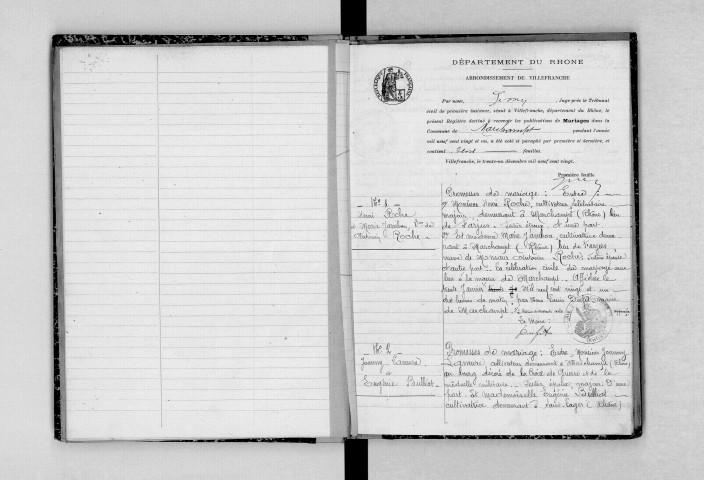 DÉPARTEMENT DU RHONE
ARRONDISSEMENT DE VILLEFRANCHE
Par nous, Juge près le Tribunal
civil de première instance, séant à Villefranche, département du Rhône, le
présent Registre destiné à recevoir les publications de Mariages dans la
Commune de Marchampt pendant l'année
mil neuf cent vingt et un, a été coté et paraphé par première et dernière, et
contient feuilles.
Villefranche, le trente-un décembre mil neuf cent vingt.
Première feuille
N° 1
Henri Roche
et Marie Jambon, Vve de
Antonin Roche
Promesses de mariage : Entre
Monsieur Henri Roche, cultivateur, célibataire
majeur, demeurant à Marchampt (Rhône) lieu
de d'une part
Et madame Marie Jambon, cultivatrice demeu
rant à Marchampt (Rhône) lieu de
veuve de Antonin Roche
d'autre part. La célébration civile du mariage aura
lieu à la mairie de Marchampt. Affiché le
trente Janvier mil neuf cent vingt et un
du matin, par nous Louis maire
de Marchampt.
Le Maire :
N° 2
Joanny Lamure
et
Eugénie
Promesses de mariage : Entre Monsieur Joanny
Lamure cultivateur demeurant à Marchampt (Rhône)
au bourg décoré de la Croix de Guerre et de la
médaille militaire majeur d'une
part. Et Mademoiselle Eugénie
cultivatrice demeurant à Saint-Lager (Rhône)